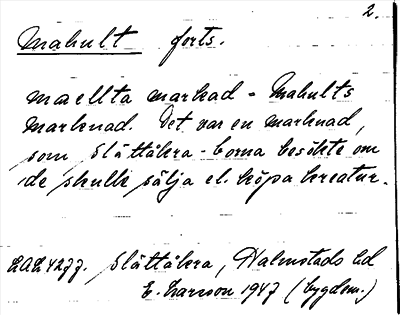 2.
Mahult forts.
maellta markad = Mahults
marknad. Det var en marknad,
som Slättåkra-borna besökte om
de skulle sälja el. köpa kreatur.
LAL 4277. Slättåkra, Halmstads hd
E. Larsson 1947 (bygdem.)